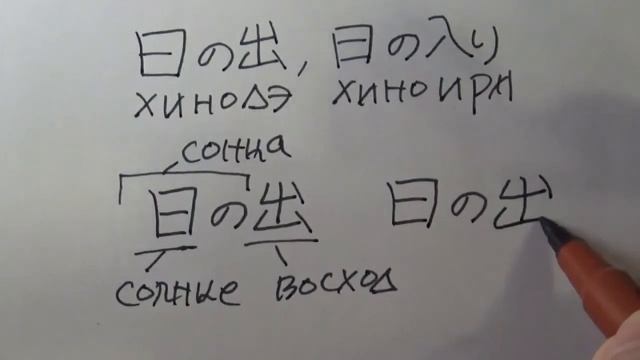 日の出, 日の入り
хинодэ хиноири
сонца
日の出 日の出
солнце восход